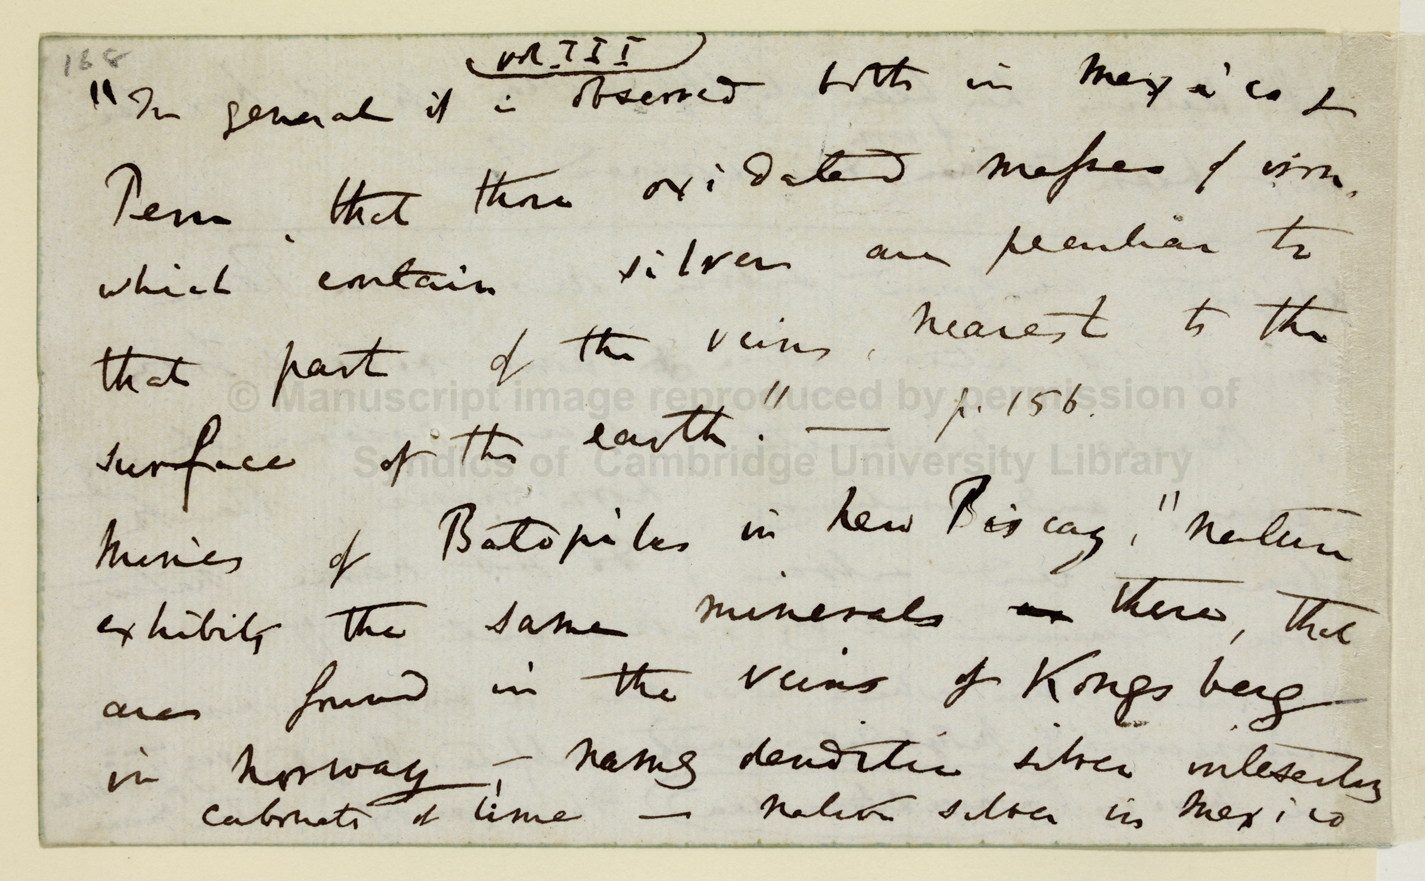 168
vol. III
"In general it is observed both in Mexico &
Peru, that those oxidated masses of iron,
which contain silver are peculiar to
that part of the veins, nearest to the
surface of the earth." — p. 156.
Mines of Batopilas in New Biscay, "Nature
exhibits the same minerals there, that
are found in the veins of Kongsberg
in Norway, — dendritic silver intersecting
carbonate of lime — native silver in Mexico
© Manuscript image reproduced by permission of
Syndics of Cambridge University Library